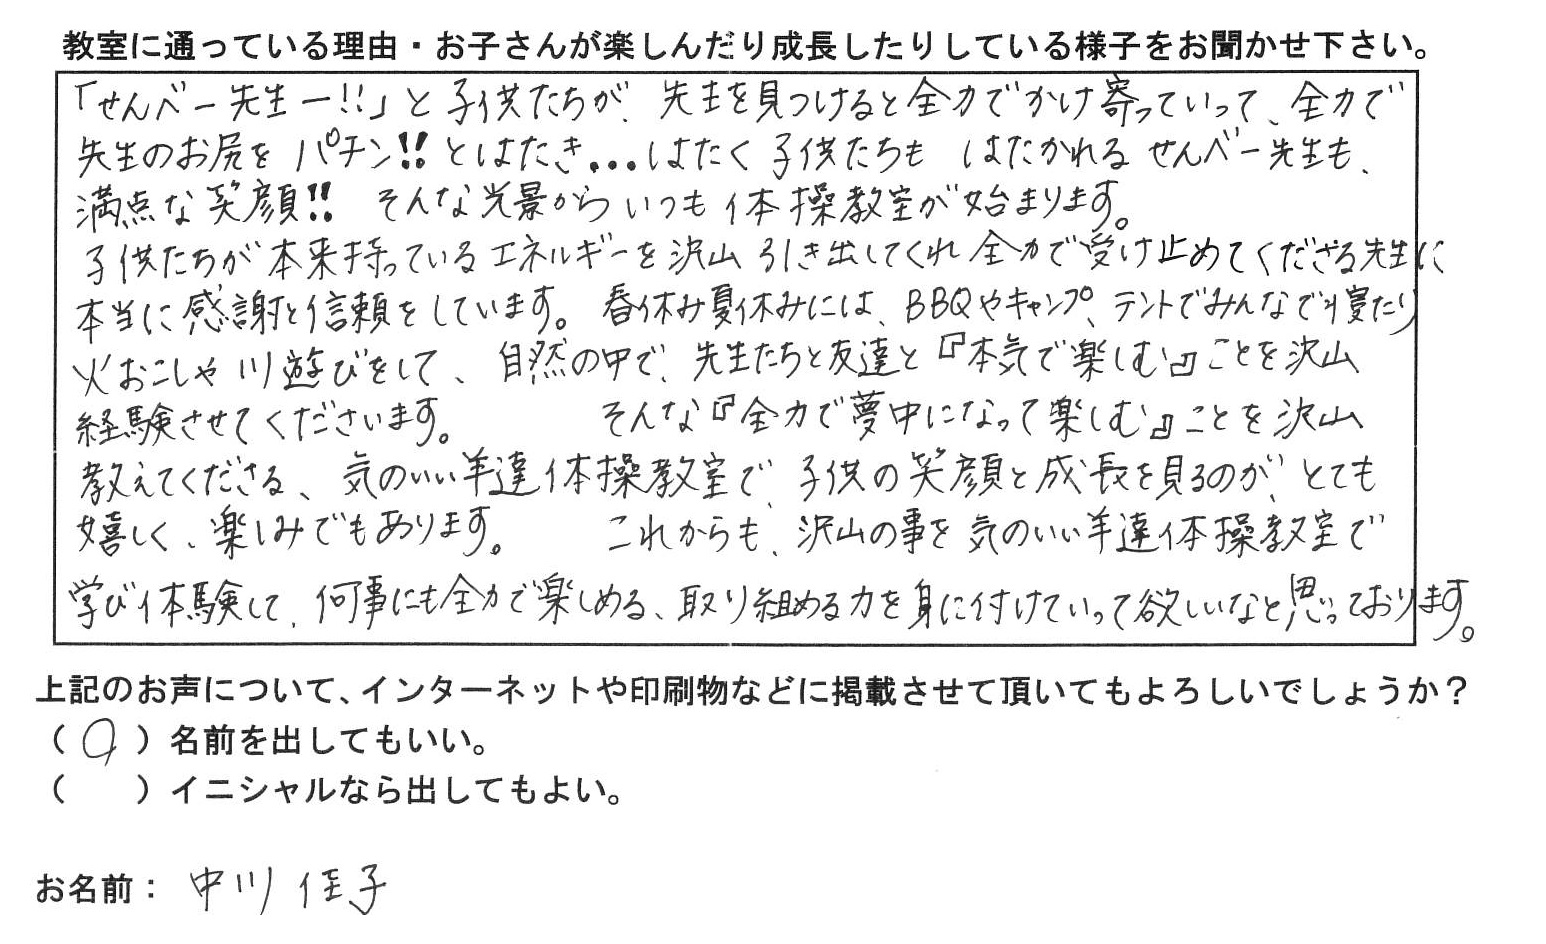 教室に通っている理由・お子さんが楽しんだり成長したりしている様子をお聞かせ下さい。
「せんべー先生ー!!」と子供たちが、先生を見つけると全力でかけ寄っていって、全力で
先生のお尻をパチン!!とはたき...はたく子供たちも はたかれるせんべー先生も、
満点な笑顔!! そんな光景からいつも体操教室が始まります。
子供たちが本来持っているエネルギーを沢山引き出してくれ全力で受け止めてくださる先生に
本当に感謝と信頼をしています。春休み夏休みには、BBQやキャンプ、テントでみんなで寝たり
火おこしや川遊びをして、自然の中で、先生たちと友達と『本気で楽しむ』ことを沢山
経験させてくださいます。 そんな『全力で夢中になって楽しむ』ことを沢山
教えてくださる、気のいい羊達体操教室で、子供の笑顔と成長を見るのが、とても
嬉しく、楽しみでもあります。 これからも、沢山の事を気のいい羊達体操教室で
学び体験して、何事にも全力で楽しめる、取り組める力を身に付けていって欲しいなと思っております。
上記のお声について、インターネットや印刷物などに掲載させて頂いてもよろしいでしょうか？
（○）名前を出してもいい。
（　）イニシャルなら出してもよい。
お名前：中川 佳子